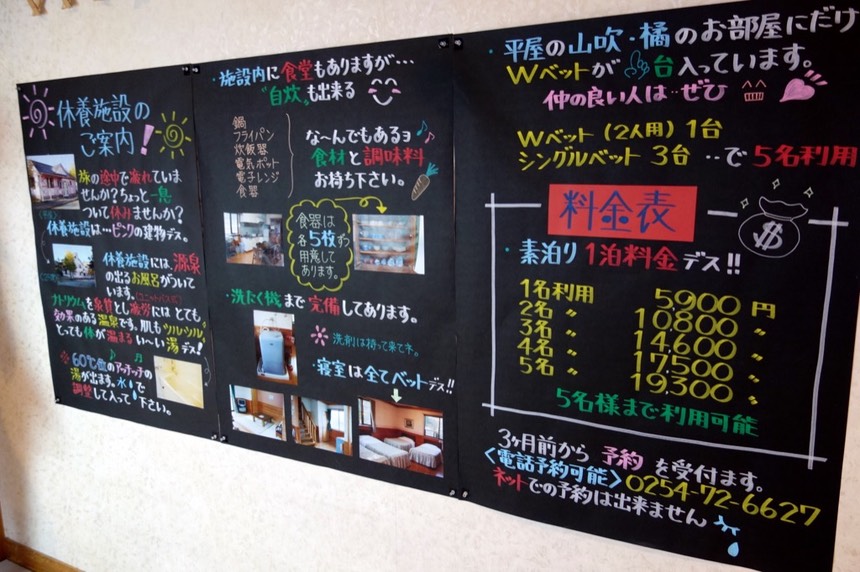 休養施設の
ご案内!
旅の途中で疲れていま
せんか?ちょっと一息
ついて休みませんか?
休養施設は…ピンクの建物デス。
休養施設には、源泉
の出るお風呂がついて
います。
ナトリウムを泉質とし疲労にはとても
効果のある温泉です。肌もツルツル。
とっても体が温まるい〜い湯デス!
※60℃位のアッチッチの
湯が出ます。水で
調整して入って下さい。
・施設内に食堂もありますが…
"自炊"も出来る
鍋
フライパン
炊飯器
電気ポット
電子レンジ
食器
な〜んでもあるヨ
食材と調味料
お持ち下さい。
食器は
各5枚ずつ
用意して
あります。
・洗たく機まで完備してあります。
※洗剤は持って来てネ。
・寝室は全てベットデス!!
・平屋の山吹・橘のお部屋にだけ
Wベットが 台入っています。
仲の良い人は…ぜひ
Wベット(2人用)1台
シングルベット 3台 ‥で5名利用
料金表
・素泊り 1泊料金デス!!
1名利用 5,900円
2名 〃 10,800 〃
3名 〃 14,600 〃
4名 〃 17,500 〃
5名 〃 19,300 〃
5名様まで利用可能
3ヶ月前から 予約 を受付ます。
<電話予約可能>0254-72-6627
ネットでの予約は出来ません